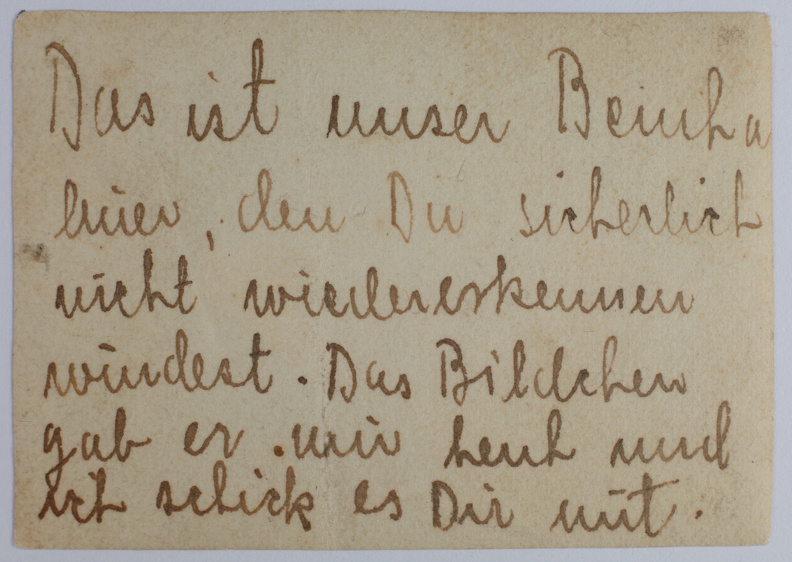 Das ist unser Beinha
, den Du sicherlich
nicht wiedererkennen
würdest. Das Bildchen
gab er mir heut und
ich schick es Dir mit.